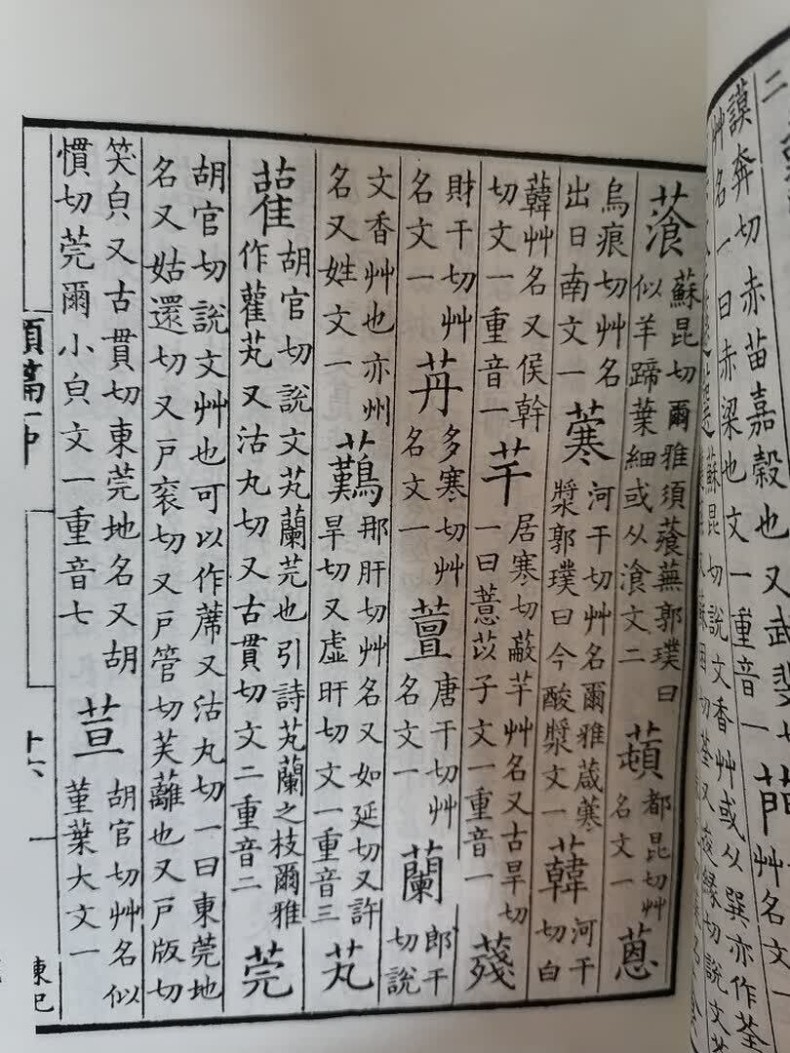 謨奔切赤苗嘉穀也又武斐切
艸名一曰赤粱也文一重音一
菛
艸名文一
蘇昆切說文香艸或从巽亦作荃
切荃又逡緣切說文
蕵
蘇昆切爾雅須蕵蕪郭璞曰
似羊蹄葉細或从飡文二
都昆切艸
名文一
蒽
烏痕切艸名
出日南文一
河干切艸名爾雅葴寒
漿郭璞曰今酸漿文一
河干
切白
韓艸名又侯幹
切文一重音一
芉
居寒切蔽芉艸名又古旱切
一曰薏苡子文一重音一
財干切艸
名文一
多寒切艸
名文一
唐干切艸
名文一
蘭
郎干
切說
文香艸也亦州
名又姓文一
那肝切艸名又如延切又許
旱切又虛旰切文一重音三
芄
雚
胡官切說文芄蘭莞也引詩芄蘭之枝爾雅
作雚芄又沽丸切又古貫切文二重音二
莞
胡官切說文艸也可以作蓆又沽丸切一曰東莞地
名又姑還切又戶袞切又戶管切芙蘺也又戶版切
笑皃又古貫切東莞地名又胡
慣切莞爾小皃文一重音七
荁
胡官切艸名似
菫葉大文一
類篇一中
十六
陳巳